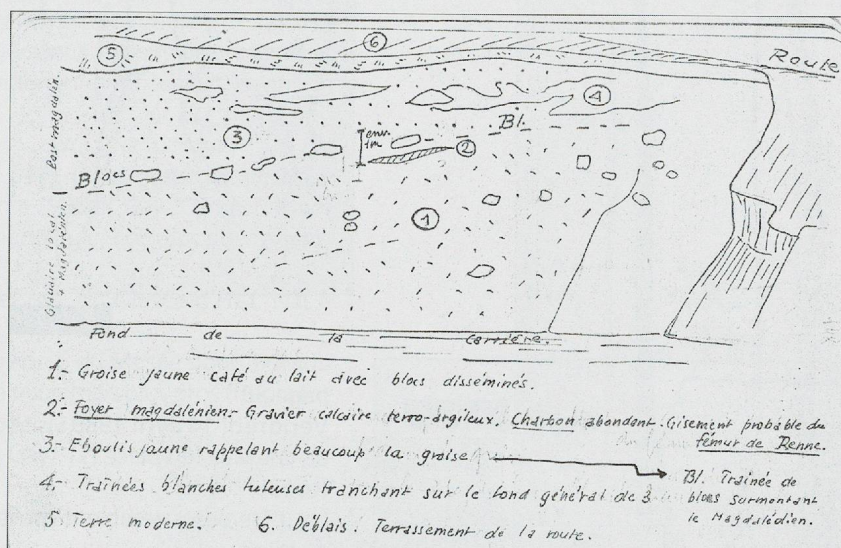 6
5
Route
4
Bl.
3
env.
1m
2
Blocs
1
Post-magdalén.
Glaciaire local
+ Magdalénien.
Fond de la carrière.
1.- Groise jaune café au lait avec blocs disséminés.
2.- Foyer magdalénien.- Gravier calcaire terro-argileux. Charbon abondant. Gisement probable du
fémur de Renne.
3.- Eboulis jaune rappelant beaucoup la groise
4.- Traînées blanches tuteuses tranchant sur le fond général de 3
Bl. Traînée de
blocs surmontant
le Magdalédien.
5 Terre moderne. 6. Déblais. Terrassement de la route.